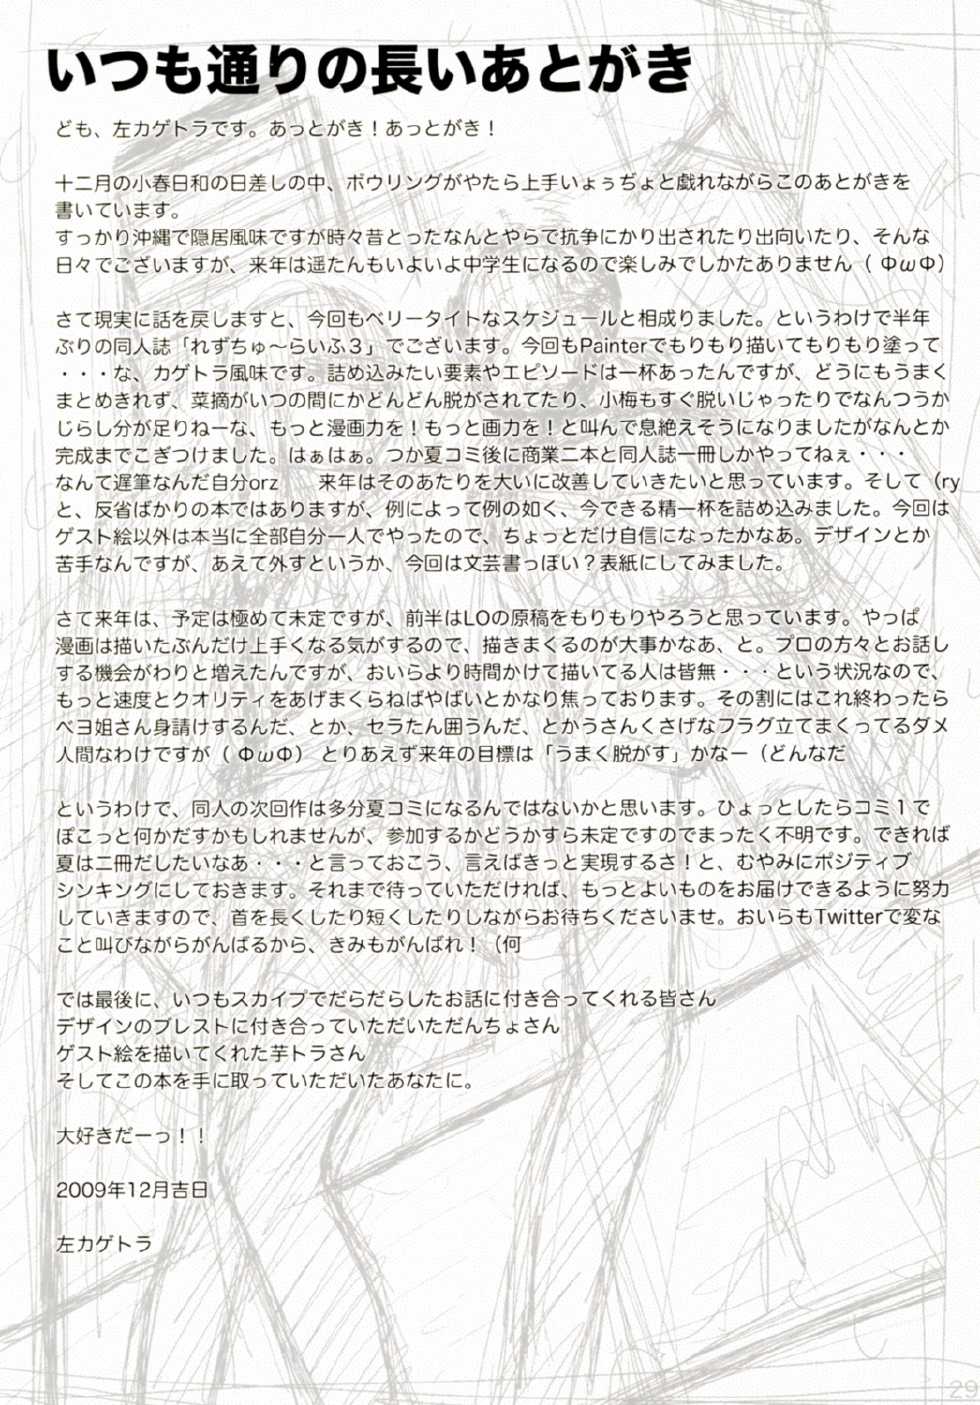 いつも通りの長いあとがき
ども、左カゲトラです。あっとがき！あっとがき！
十二月の小春日和の日差しの中、ボウリングがやたら上手いょぅぢょと戯れながらこのあとがきを
書いています。
すっかり沖縄で隠居風味ですが時々昔とったなんとやらで抗争にかり出されたり出向いたり、そんな
日々でございますが、来年は遥たんもいよいよ中学生になるので楽しみでしかたありません（ ΦωΦ）
さて現実に話を戻しますと、今回もベリータイトなスケジュールと相成りました。というわけで半年
ぶりの同人誌「れずちゅ～らいふ３」でございます。今回もPainterでもりもり描いてもりもり塗って
・・・な、カゲトラ風味です。詰め込みたい要素やエピソードは一杯あったんですが、どうにもうまく
まとめきれず、菜摘がいつの間にかどんどん脱がされてたり、小梅もすぐ脱いじゃったりでなんつうか
じらし分が足りねーな、もっと漫画力を！もっと画力を！と叫んで息絶えそうになりましたがなんとか
完成までこぎつけました。はぁはぁ。つか夏コミ後に商業二本と同人誌一冊しかやってねぇ・・・
なんて遅筆なんだ自分orz　　来年はそのあたりを大いに改善していきたいと思っています。そして（ry
と、反省ばかりの本ではありますが、例によって例の如く、今できる精一杯を詰め込みました。今回は
ゲスト絵以外は本当に全部自分一人でやったので、ちょっとだけ自信になったかなあ。デザインとか
苦手なんですが、あえて外すというか、今回は文芸書っぽい？表紙にしてみました。
さて来年は、予定は極めて未定ですが、前半はLOの原稿をもりもりやろうと思っています。やっぱ
漫画は描いたぶんだけ上手くなる気がするので、描きまくるのが大事かなあ、と。プロの方々とお話し
する機会がわりと増えたんですが、おいらより時間かけて描いてる人は皆無・・・という状況なので、
もっと速度とクオリティをあげまくらねばやばいとかなり焦っております。その割にはこれ終わったら
ベヨ姐さん身請けするんだ、とか、セラたん囲うんだ、とかうさんくさげなフラグ立てまくってるダメ
人間なわけですが（ ΦωΦ） とりあえず来年の目標は「うまく脱がす」かなー（どんなだ
というわけで、同人の次回作は多分夏コミになるんではないかと思います。ひょっとしたらコミ１で
ぽこっと何かだすかもしれませんが、参加するかどうかすら未定ですのでまったく不明です。できれば
夏は二冊だしたいなあ・・・と言っておこう、言えばきっと実現するさ！と、むやみにポジティブ
シンキングにしておきます。それまで待っていただければ、もっとよいものをお届けできるように努力
していきますので、首を長くしたり短くしたりしながらお待ちくださいませ。おいらもTwitterで変な
こと叫びながらがんばるから、きみもがんばれ！（何
では最後に、いつもスカイプでだらだらしたお話に付き合ってくれる皆さん
デザインのブレストに付き合っていただいただんちょさん
ゲスト絵を描いてくれた芋トラさん
そしてこの本を手に取っていただいたあなたに。
大好きだーっ！！
2009年12月吉日
左カゲトラ
29